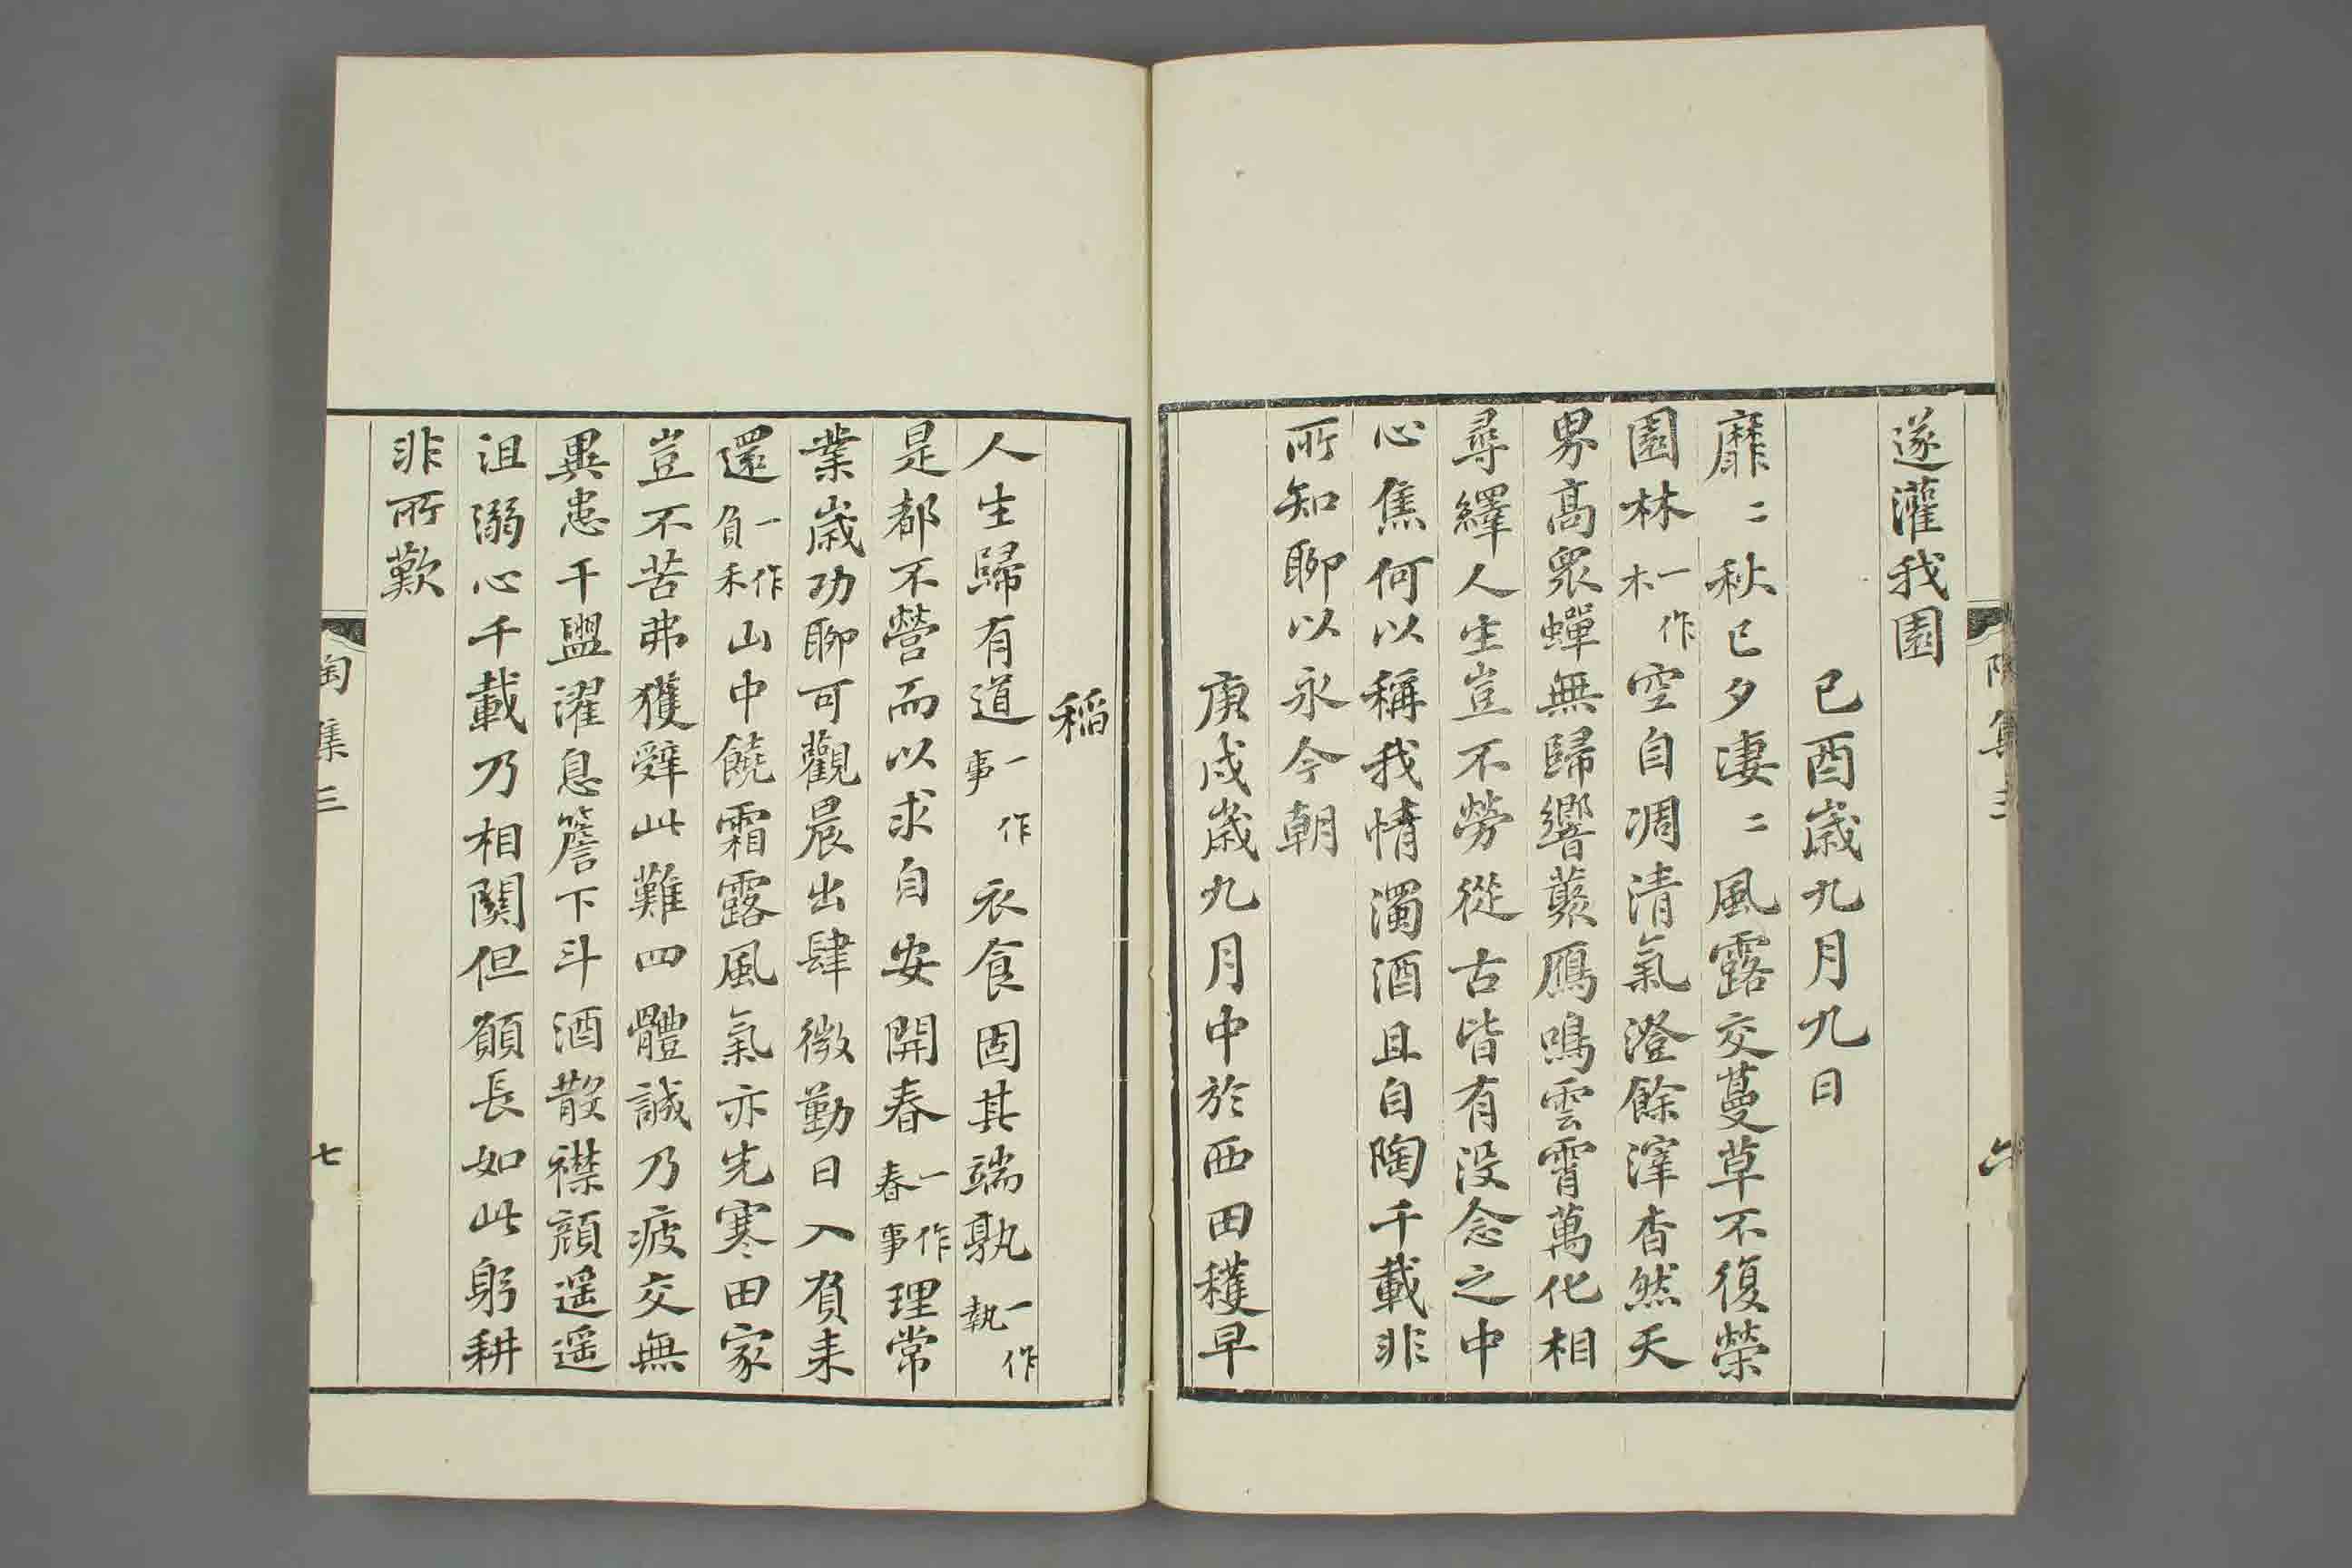 遂灌我園
己酉歲九月九日
靡〻秋已夕淒〻風露交蔓草不復榮
園林一作木空自凋清氣澄餘滓杳然天
界高衆蟬無歸響藂鴈鳴雲霄萬化相
尋繹人生豈不勞從古皆有沒念之中
心焦何以稱我情濁酒且自陶千載非
所知聊以永今朝
庚戌歲九月中於西田穫早
稻
人生歸有道一作事衣食固其端孰一作執
是都不營而以求自安開春一作春事理常
業歲功聊可觀晨出肆微勤日入負耒
還一作負禾山中饒霜露風氣亦先寒田家
豈不苦弗獲辤此難四體誠乃疲交無
異患干盥濯息簷下斗酒散襟顔遥遥
沮溺心千載乃相關但願長如此躬耕
非所歎
陶集三
七